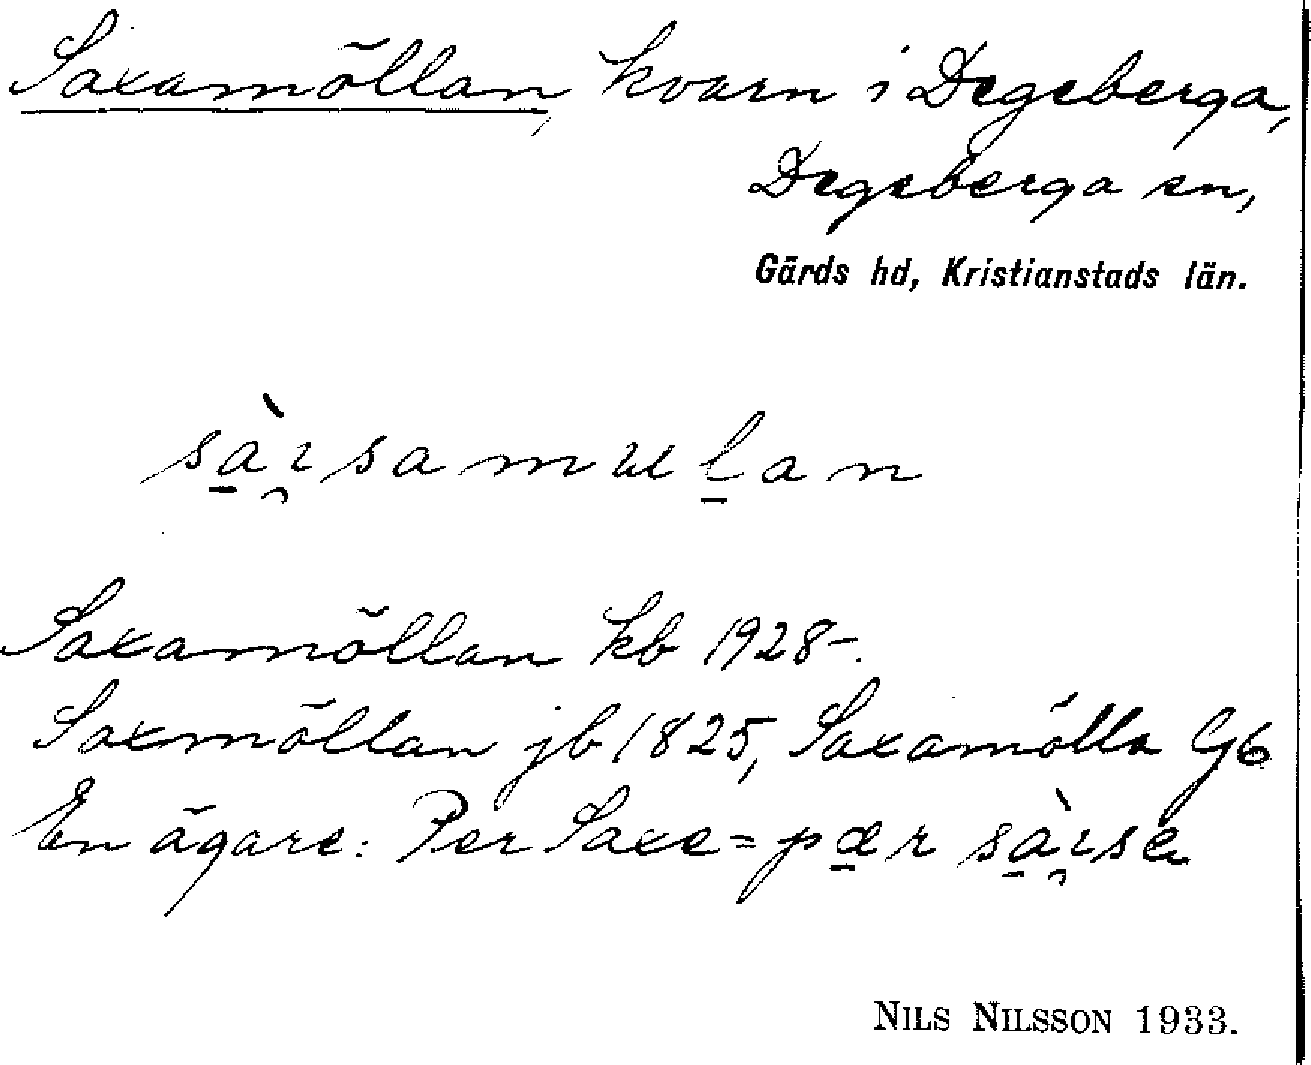 Saxamöllan, kvarn i Degeberga,
Degeberga sn,
Gärds hd, Kristianstads län.
Saxamöllan kb 1928-.
Saxmöllan jb 1825, Saxamölla Gb
En ägare: Per Saxe =
NILS NILSSON 1933.